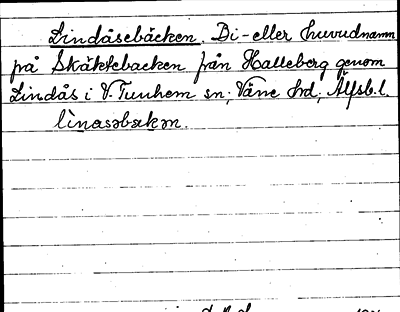 Lindåsebäcken. Bi- eller huvudnamn
på Skäktebacken från Halleberg genom
Lindås i V. Tunhem sn; Väne hd; Älfsb. l.